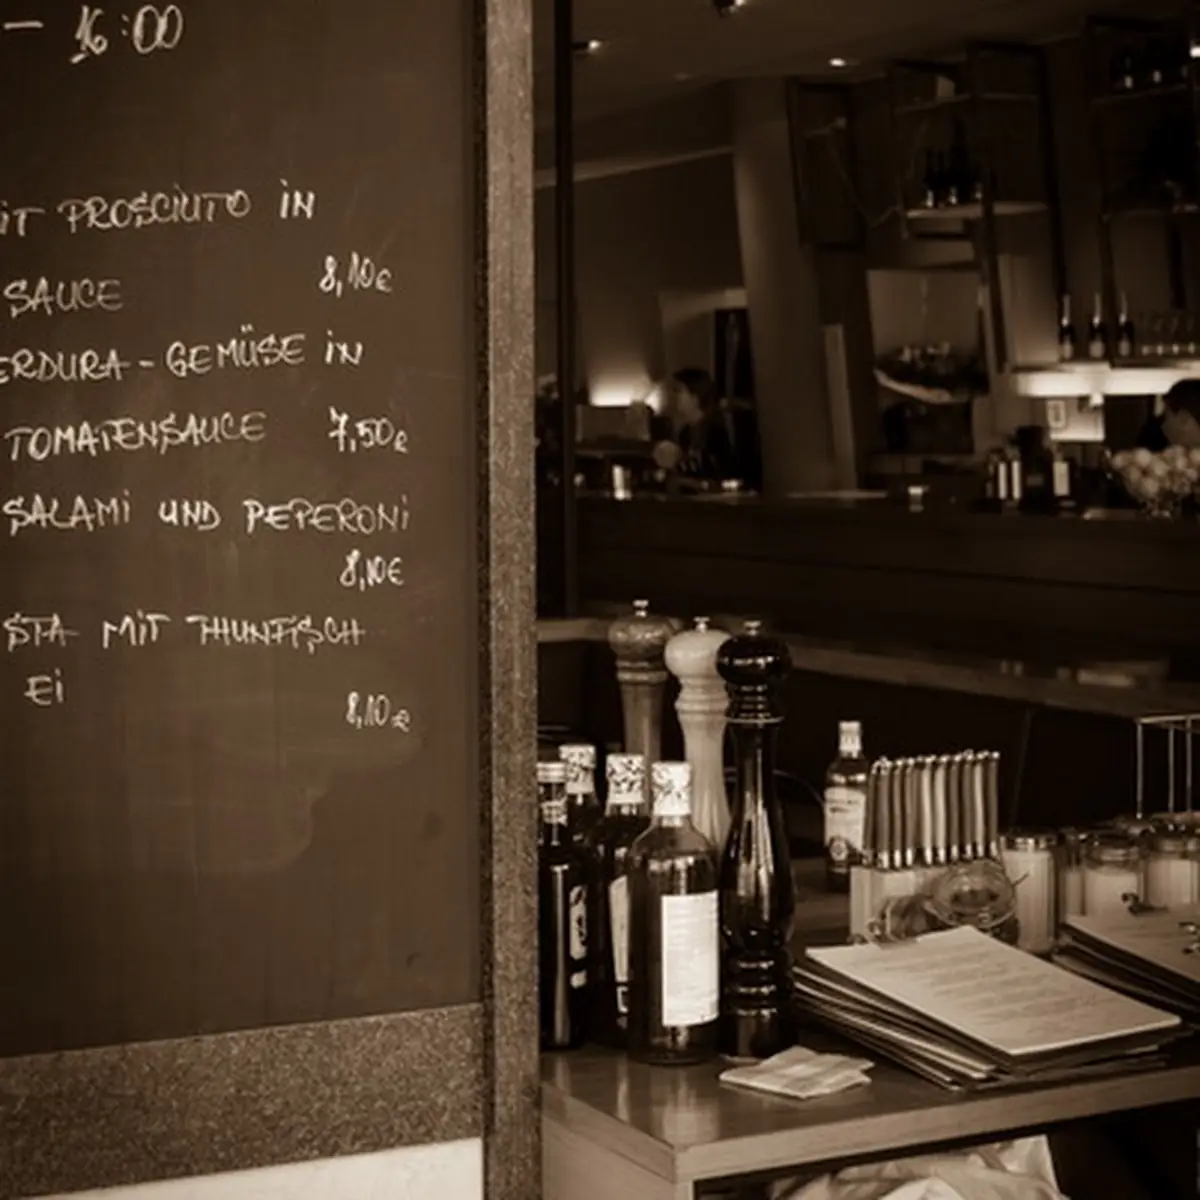 – 16:00
MIT PROSCIUTO IN
SAUCE 8,10€
ERDURA-GEMÜSE IN
TOMATENSAUCE 7,50€
SALAMI UND PEPERONI
8,10€
STA MIT THUNFISCH
EI
8,10€